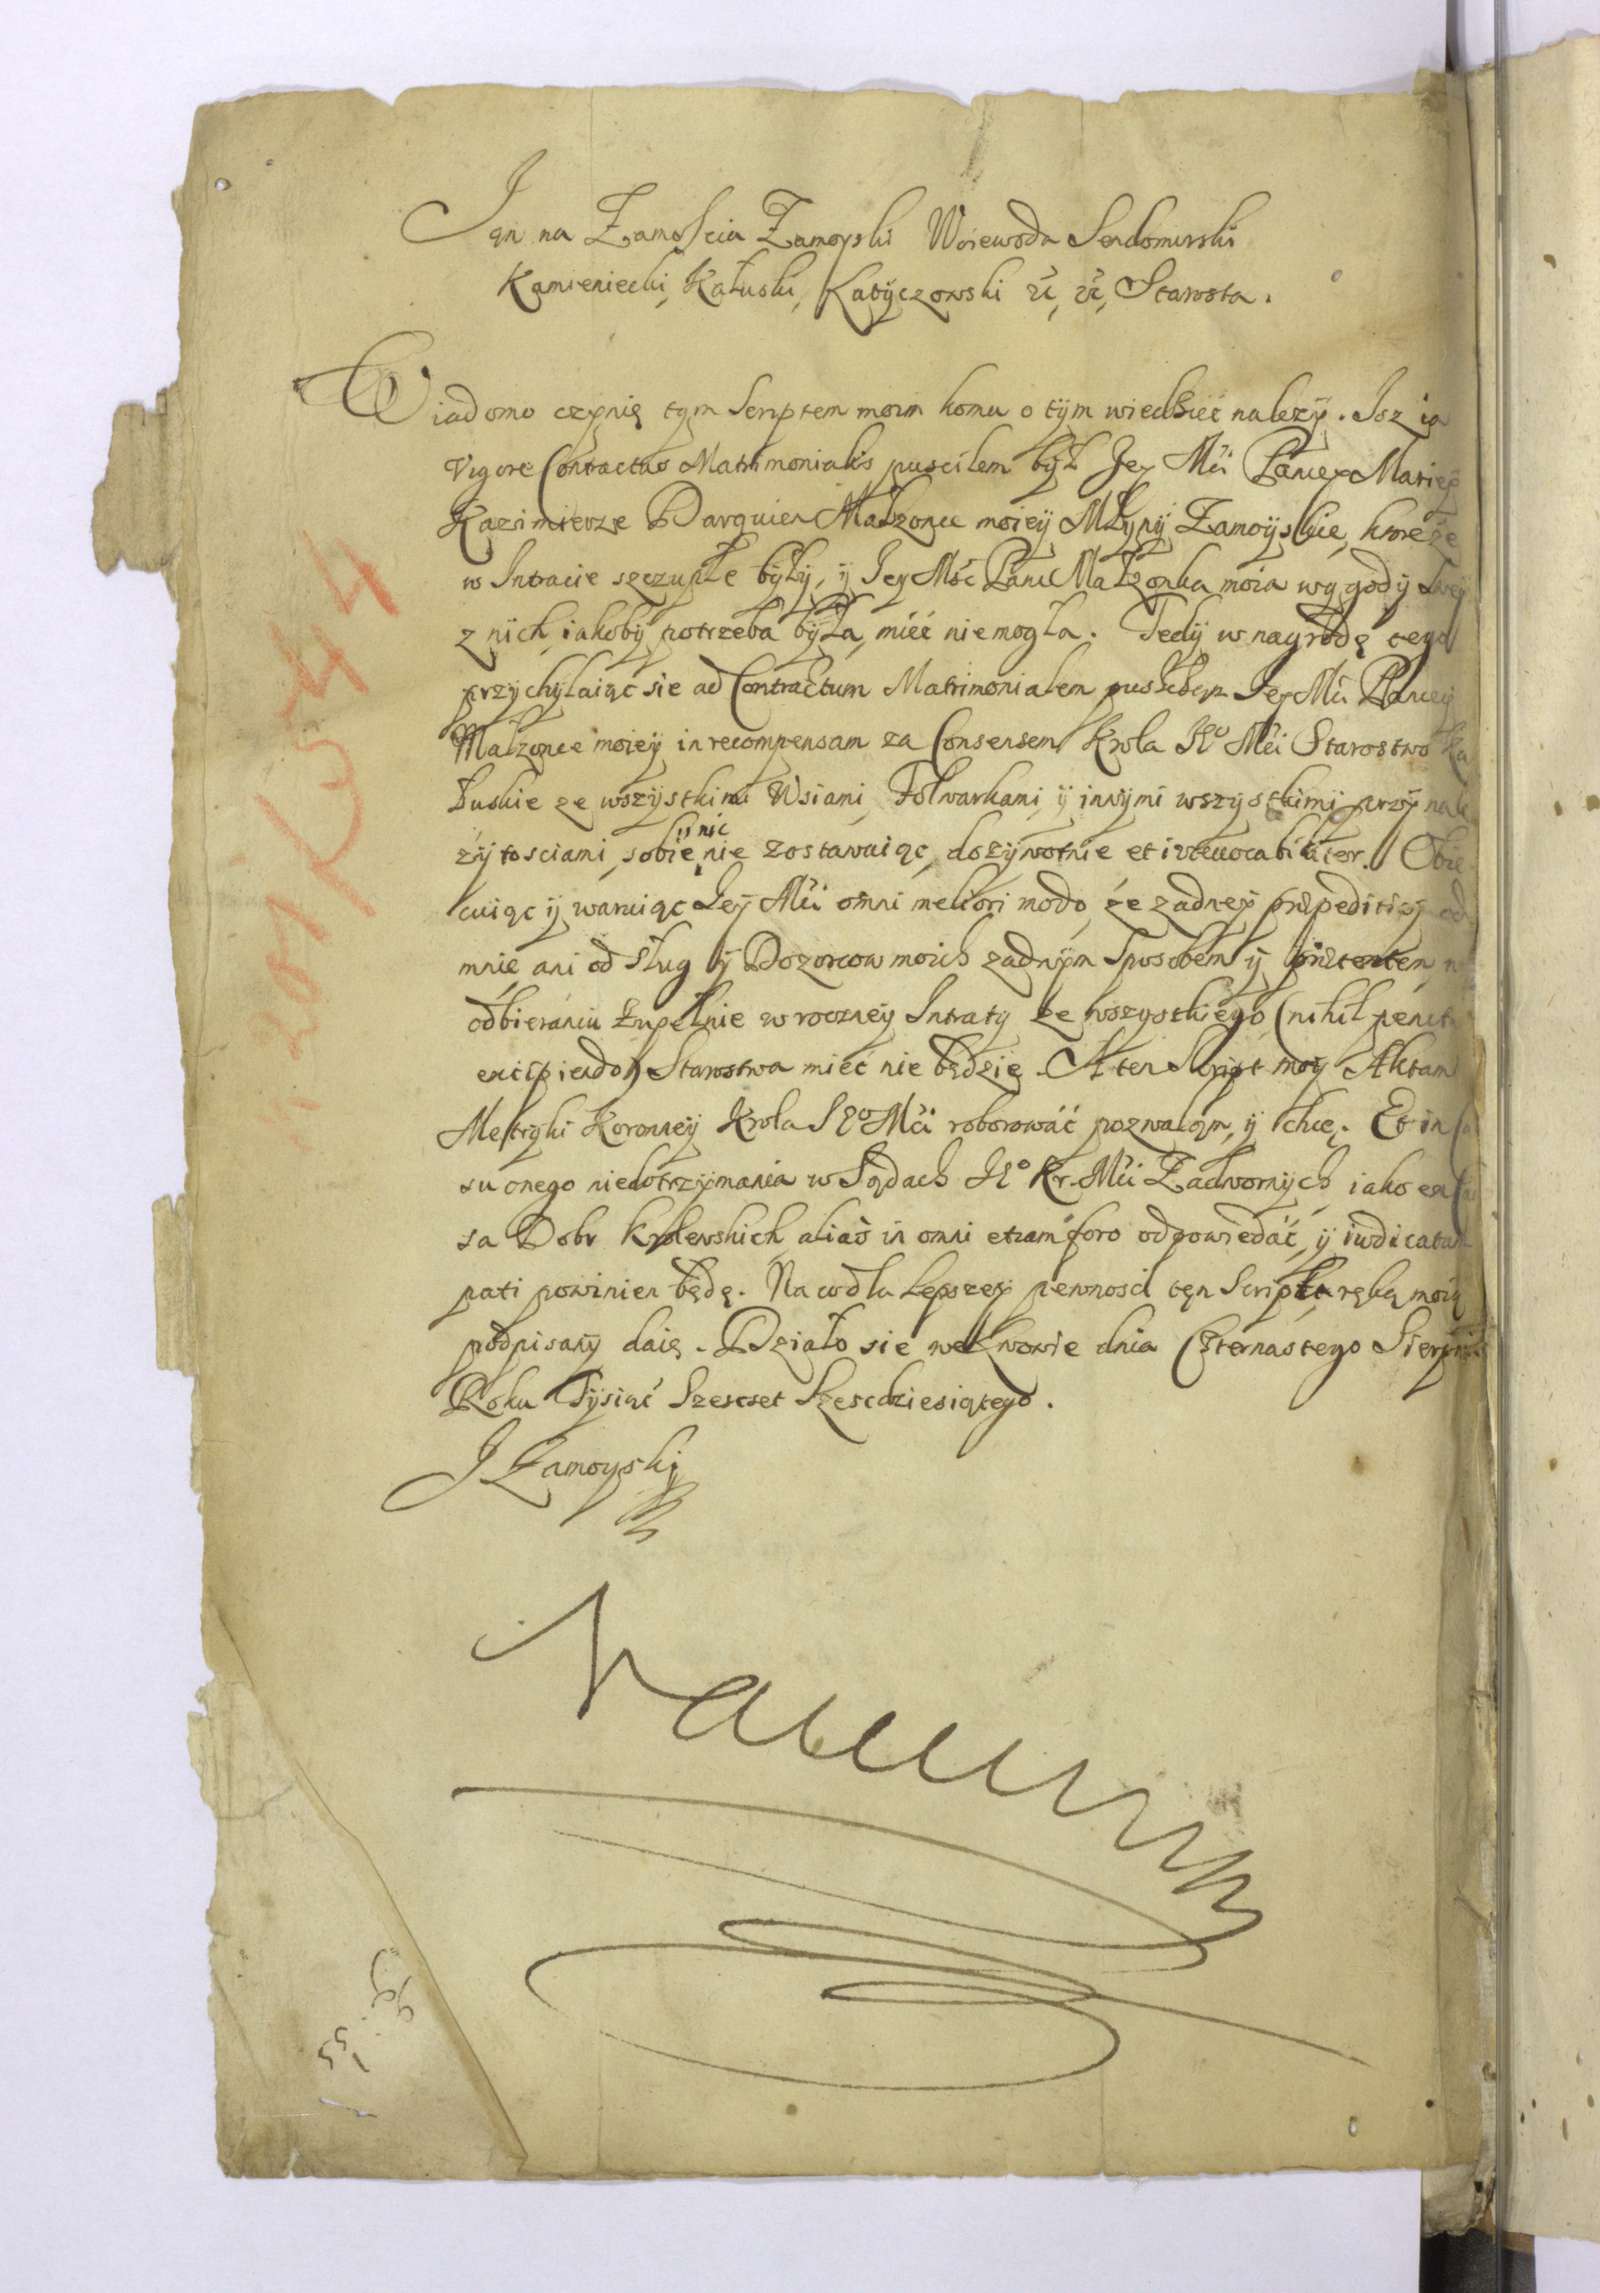 Jan na Zamosciu Zamoyski Woiewoda Sendomirski
Kamieniecki, Kałuski, Łatyczowski &c, &c, Starosta.
Wiadomo czynię tym Scriptem moim komu o tym wiedzieć należy. Isz ia
Vigore Contractus Matrimonialis pusciłem był Jey Mci Paniey Mariey
Kazimierze Darquien Małżonce moiey Młyny Zamoyskie, ktore że
w Intracie szczupłe były, y Jey Mść Pani Małżonka moia wygody swey
z nich, iakoby potrzeba była, mieć niemogła. Tedy w nagrodę tego
przychylaiąc sie ad Contractum Matrimonialem Jey Mci Paniey
Małżonce moiey in recompensam za Consensem Krola Je° Mci Starostwo Ka
łuskie ze wszystkimi Wsiami, Folwarkami, y innymi wszystkimi przynale
żytosciami, sobie y nic nie zostawuiąc, dożywotnie et irrevocabiliter. Obie
cuiąc y waruiąc Jey Mci omni meliori modo, że żadney praepeditiey od
mnie ani od Sług y Dozorcow moich żadnym Sposobem y w
odbieraniu zupełnie w roczney Intraty ze wszystkiego (nihil penitus
excipiendo) Starostwa mieć nie będzie. A ten Skript moy Aktami
Metryki Koronney Krola Je° Mci roborować pozwalam, y chcę. Et in Ca
su onego niedotrzymania w Sądach Je° Kr. Mci Zadwornych iako ex Cau
sa Dobr Krolewskich, alias in omni etiam foro odpowiedać, y iudicatum
pati powinien będę. Na co dla lepszey pewnosci ten Script ręką moią
podpisany daię. Działo sie we Lwowie dnia Czternastego Sierpnia
Roku Tysiąc Szescset Szescdziesiątego.
J Zamoyski